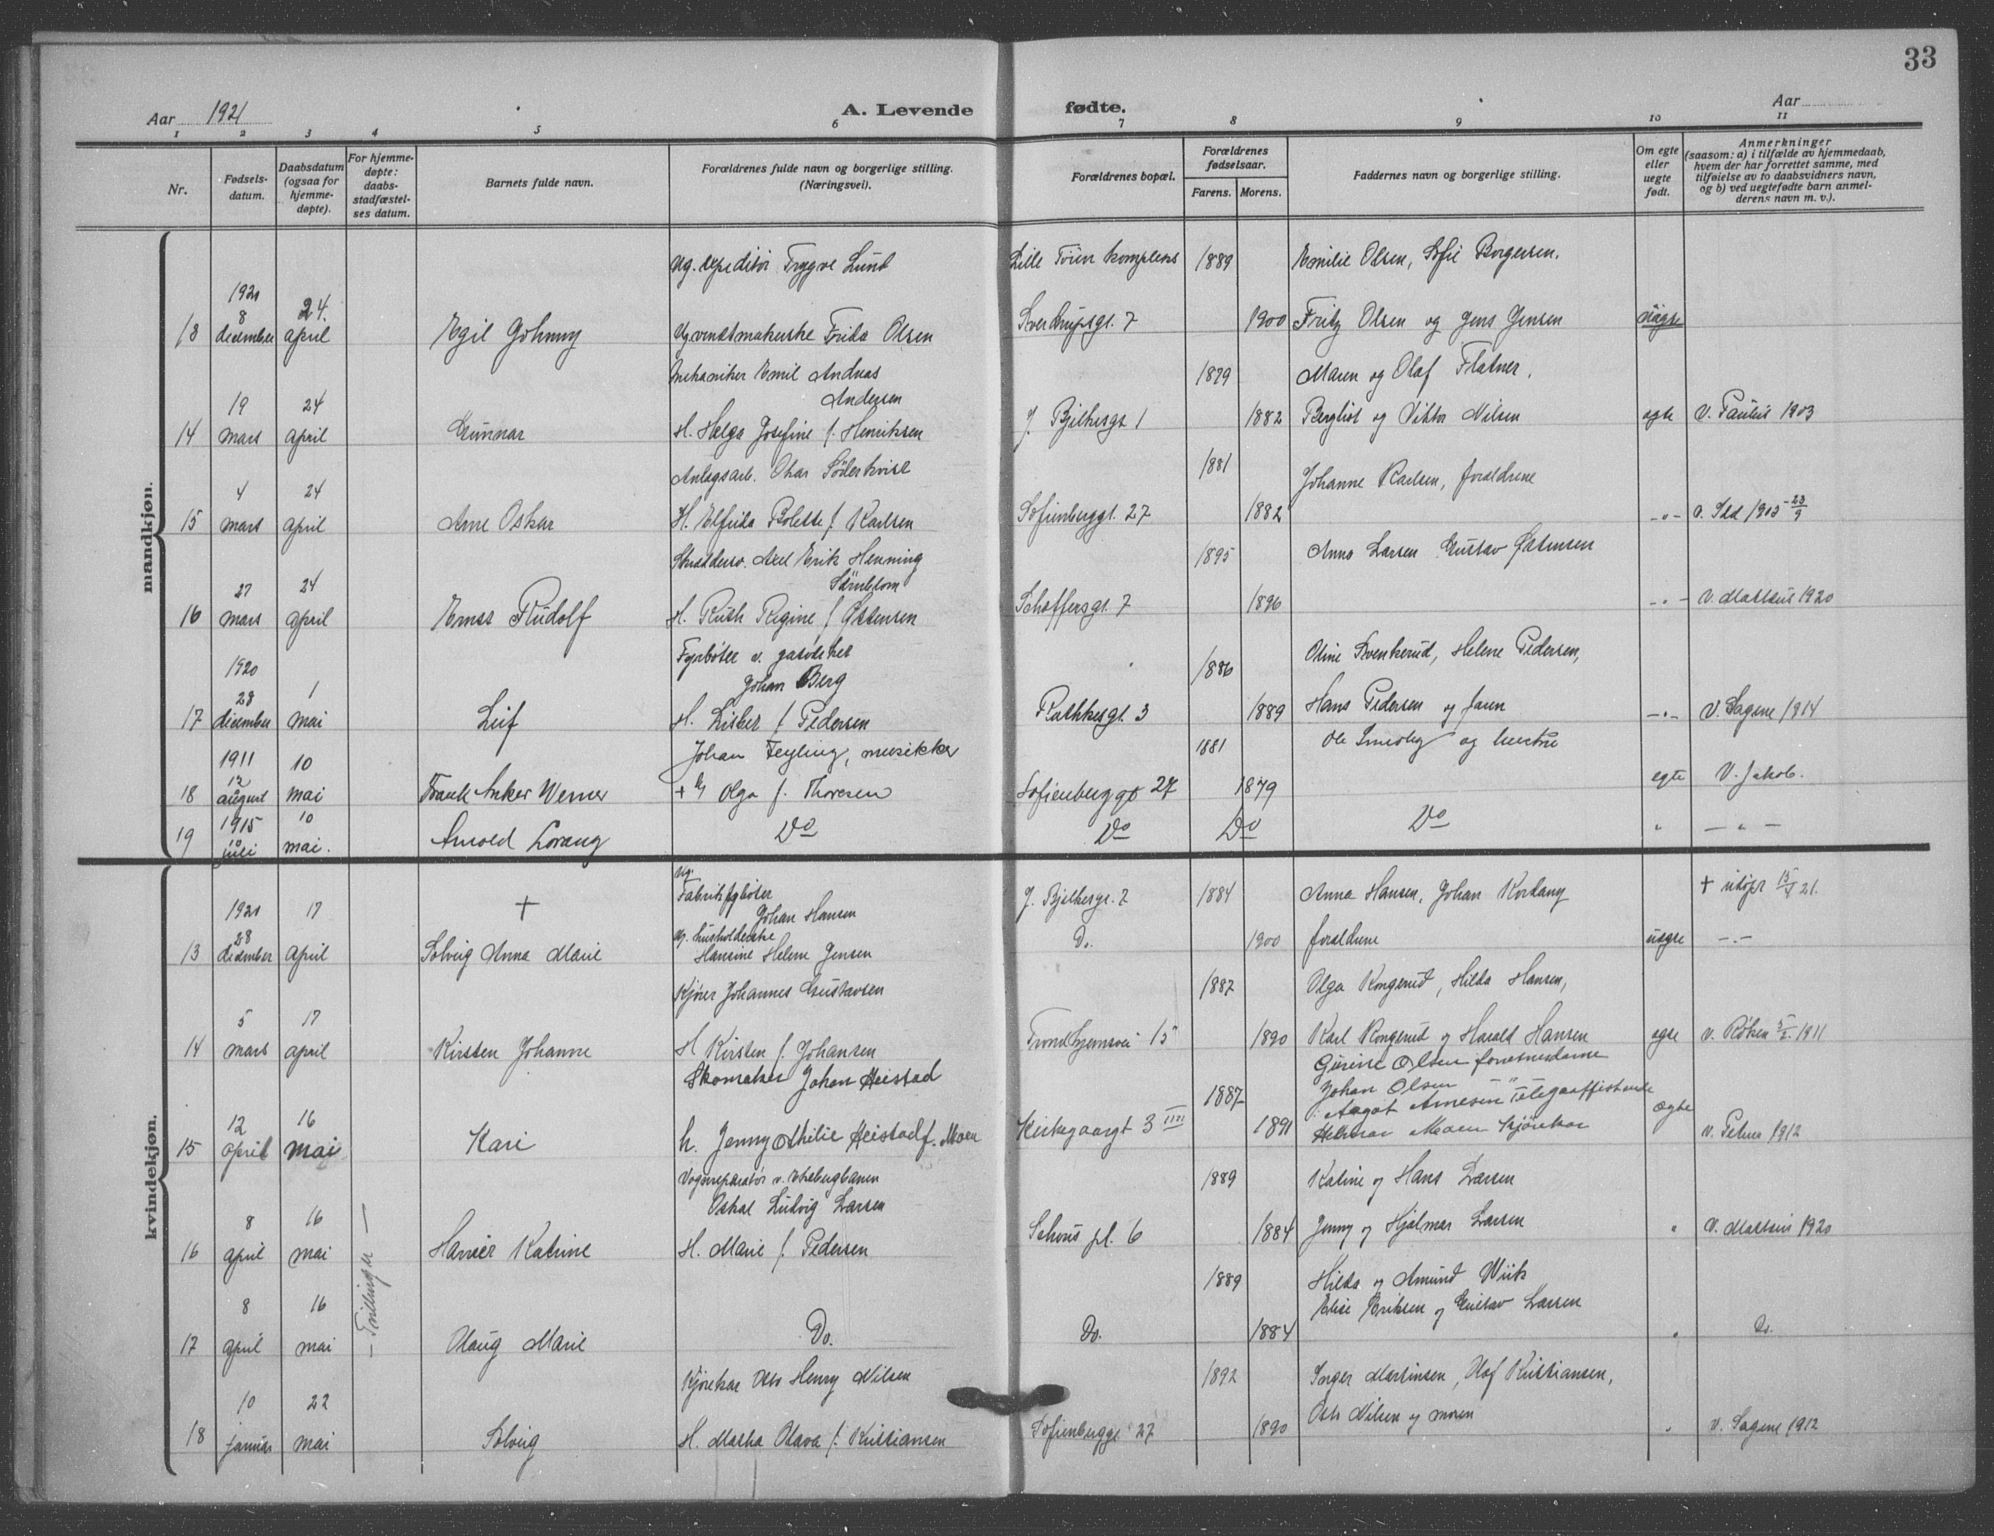 33
Aar 1921
A. Levende fødte.
Aar
1 2 3 4 5 6 7 8 9 10 11
Nr.
Fødsels-
datum.
Daabsdatum
(ogsaa for
hjemme-
døpte).
For hjemme-
døpte:
daabs-
stadfæstel-
ses datum.
Barnets fulde navn.
Forældrenes fulde navn og borgerlige stilling.
(Næringsvei).
Forældrenes bopæl.
Forældrenes
fødselsaar.
Farens. Morens.
Faddernes navn og borgerlige stilling.
Om egte
eller
uegte
født.
Anmerkninger
(saasom: a) i tilfælde av hjemmedaab,
hvem der har forrettet samme, med
tilføielse av to daabsvidners navn,
og b) ved uegtefødte barn anmel-
derens navn m. v.).
mandkjøn.
Ug. expeditør Trygve Lund Lille Tøien kompleks 1889 Emilie Olsen, Sofie Borgersen.
1920
8 24.
13 december april Egil Johnny Ug. Frida Olsen Sverdrupsgt. 7 1900 Fritz Olsen og Jens Jensen uægte
Mekaniker Emil Andreas 1879 Maren og Olaf Flatner.
Andersen
19 24
14 mars april Gunnar H. Helga Josefine f. Henriksen J. Bjelkesgt 1 1882 Bergliot og Viktor Nilsen egte v. Paulus 1903
Anlegsarb. Søderkvist 1881 Johanne Karlsen, forældrene
4 24
15 mars april Arne Oskar H. Elfrida Bolette f. Karlsen Sofienberggt. 27 1882 -"- 1905 23/9
Skreddersv. Axel Erik Henning 1895 Anna Larsen Gustav Østensen
27 24
16 mars april Ernst Rudolf H. Ruth Regine f. Østensen Scheffersgt. 7 1896 -"- v. Matteus 1920
Fyrbøter v. gasverket 1886 Oline Svenkerud, Helene Pedersen,
Johan Berg
1920
28 1
17 december mai Leif H. Lisbet f. Pedersen Rathkesgt. 3 1889 Hans Pedersen og faren -"- V. Sagene 1914
Johan Feyling, musikker 1881 Ole Smedby og hustru
1911
12 10
18 august mai Frank Anker Werner + h Olga f. Thoresen Sofienberggt 27 1879 egte V. Jakob.
1915
10 10
19 juli mai. Arnold Lorang Do Do Do Do " — " —
kvindekjøn.
Ug.
Fabrikfyrbøter
Johan Hansen J. Bjelkesgt. 7 1884 Anna Hansen, Johan + utöpt 15/4 21.
1920 17 +
28
Ug. husholderske
13 december april Solveig Anna Marie Hansine Helene Jensen Do. 1900 forældrene uegte -"-
Kjører Johannes Gustavsen 1887 Olga Kongerud, Hilda Hansen,
5 17
14 mars april Kirsten Johanne H Kirsten f. Johansen Trondhjemsvei 15 1890 Karl Kongerud og Harald Hansen egte v. Røken 5/2 1911
Skomaker Johan Heistad 1887 Gurine Olsen forretnerdame
Johan Olsen —"—
Aagot Arnesen Telegrafistinde
12 16
15 april mai Kari h. Jenny Othilie Heistad f. Moen Kirkegaargt 3 III 1891 Helmar Moen kjørekar ægte v. Petrus 1912
Vognreparatør v. Ekebergbanen 1889 Katine og Hans Larsen
Oskar Ludvig Larsen
8 16
16 april mai Harriet Katrine H. Marie f. Pedersen Schous pl. 6 1884 Jenny og Hjalmar Larsen " V. Matteus 1920
— Tvillinger —
1889 Hilda og Amund Wiik
8 16
Elise Eriksen og Gustav Larsen
17 april mai Olaug Marie Do. Do. 1884 " Do.
Kjørekar Otto Henry Nilsen 1892 Inger Martinsen, Olaf Kristiansen,
10 22
18 januar mai Solveig H. Martha Olava f. Kristiansen Sofienberggt 27 1890 Otto Nilsen og moren " v. Sagene 1912